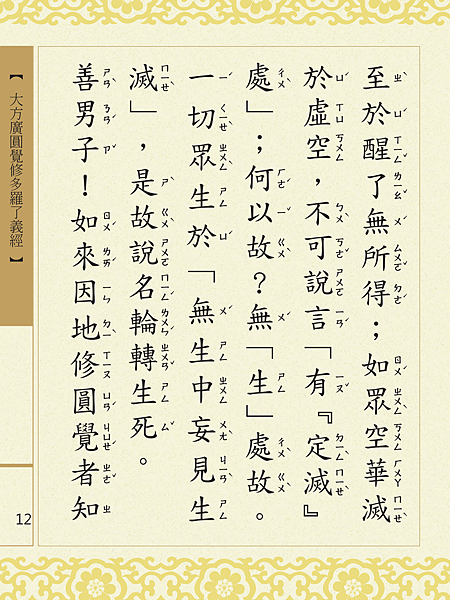 至於醒了無所得；如眾空華滅
於虛空，不可說言「有『定滅』
處」；何以故？無「生」處故。
一切眾生於「無生中妄見生
滅」，是故說名輪轉生死。
善男子！如來因地修圓覺者知
【 大方廣圓覺修多羅了義經 】
12